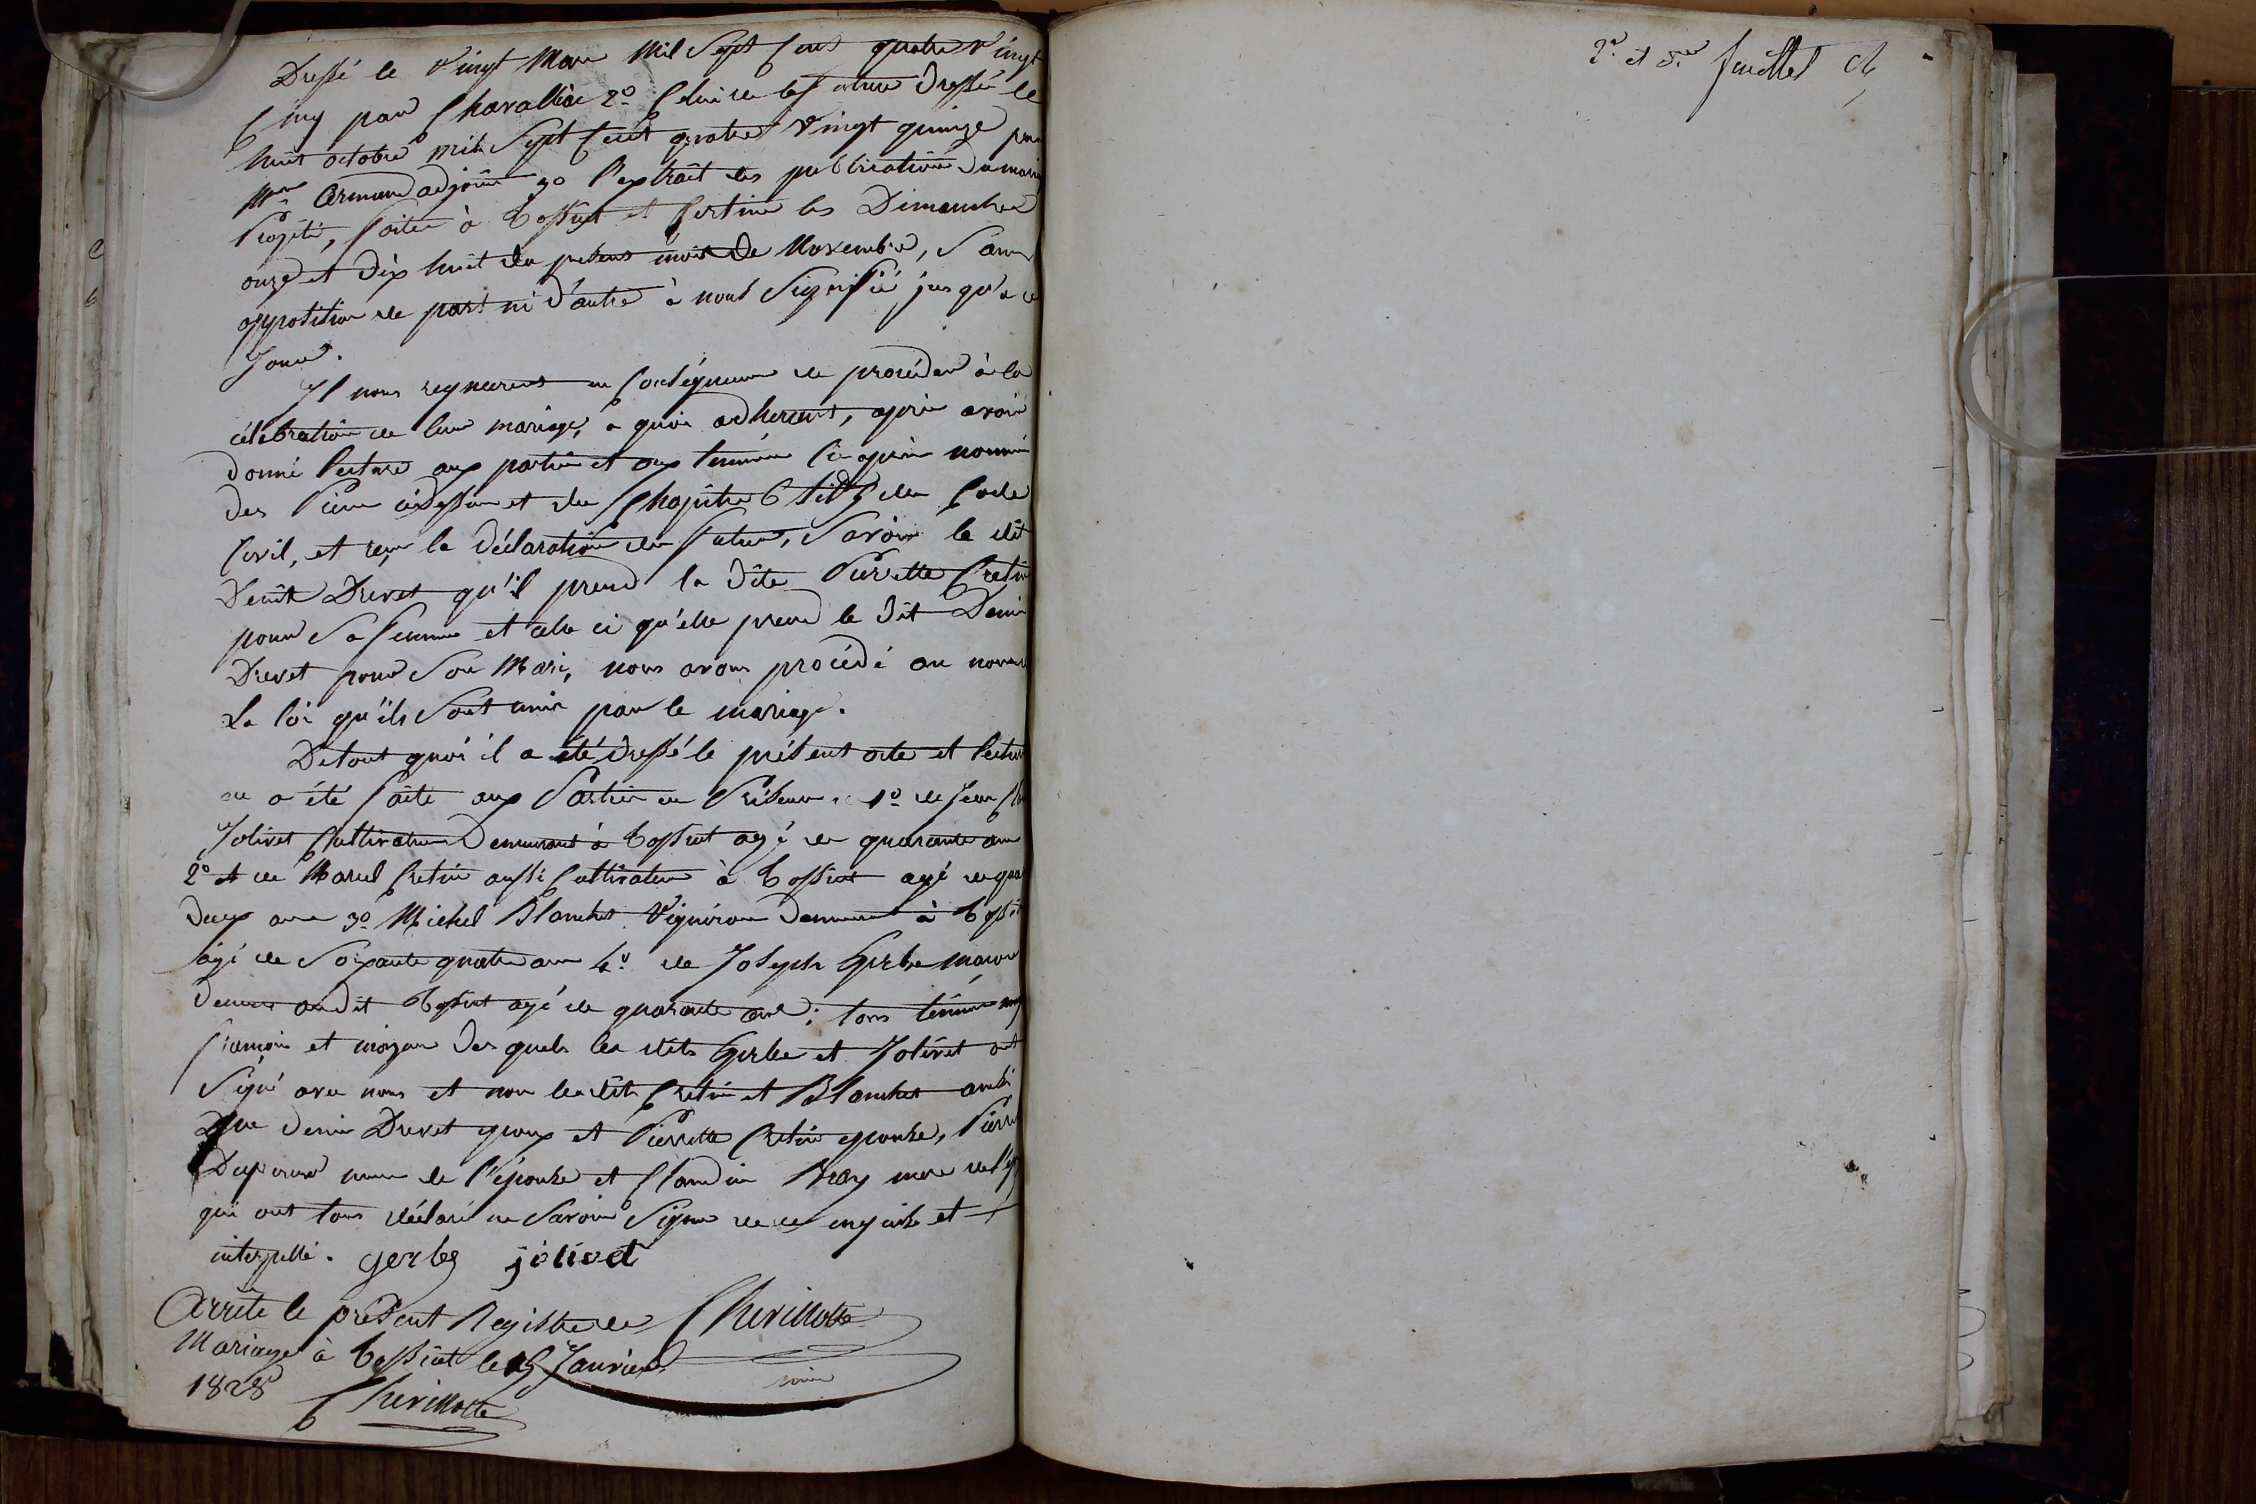 Dressé le vingt Mars mil Sept Cent quatre vingt
Cinq par Chavallier 2o. Celui de la future dressé le
huit octobre mil Sept Cent quatre vingt quinze par
Mr. Armand adjoint 3o l'extrait des publications du mariage
Projeté, faites à Cossiat et les Dimanches
onze et dix huit du présent mois de Novembre, Sans
opposition de part ni d'autre à nous Signifié jusqu'a ce
Jour.
Il nous requierent en Conséquence de procéder à la
célébration de leur mariage, a quoi adherent, après avoir
donné lecture aux parties et aux témoins ci après nommés
des Pièces cidessus et du Chapitre 6 du Code
Civil, et reçu la déclaration des futurs, Savoir le dit
Denis Drevet qu'il prend la dite Pierrette Cretin
pour Sa femme et celle ci qu'elle prend le dit Denis
Drevet pour Son Mari, nous avons procédé au nom de
La loi qu'ils Sont unis par le mariage.
De tout quoi il a été dressé le présent acte et lecture
en a été faite aux Parties en Présence 1o. de Jean
Jolivet Cultivateur Demeurant à Cossiat agé de quarante ans
2o et de Marcel Cretin aussi Cultivateur à Cossiat agé de
deux ans 3o. Michel Blanchet Vigneron Demeurant à Cossiat
âgé de Soixante quatre ans 4o. de Joseph Gerbe maçon
Demeurant audit Cossiat agé de quarante ans; tous témoins
et desquels les dits Gerbe et Jolivet ont
Signé avec nous et non les dits Cretin et Blanchet ainsi
Que denis Drevet epoux et Pierrette Cretin epouse,
mere de l'épouse et Claudine mere de
qui ont tous déclaré ne Savoir Signer de ce enquis et
interpellé. gerbe jolivet
Arrêté le présent Registre de Cherillotte
Mariage à Cossiat le 15 Janvier maire
1828 Cherillotte
2e. et der feuillet